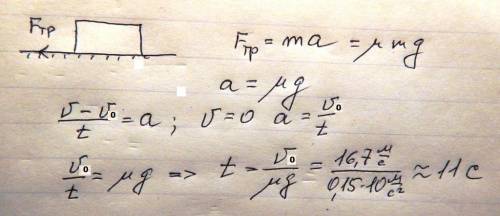 Fтр
Fтр = ma = μmg
a = μg
(v - v₀)/t = a ; v = 0 a = v₀/t
v₀/t = μg => t - v₀/μg = 16,7 м/с / 0,15·10 м/с² ≈ 11 с